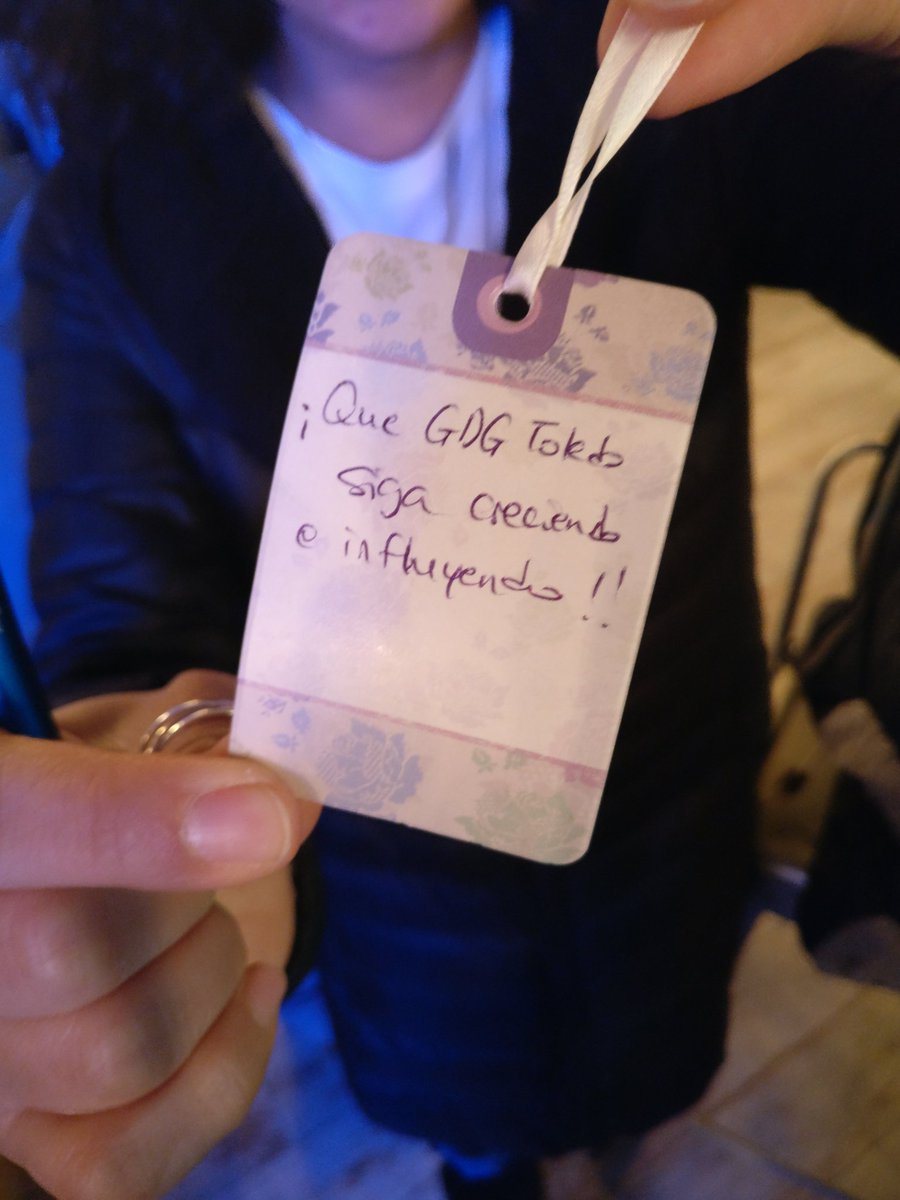 ¡Que GDG Toledo
siga creciendo
e influyendo!!